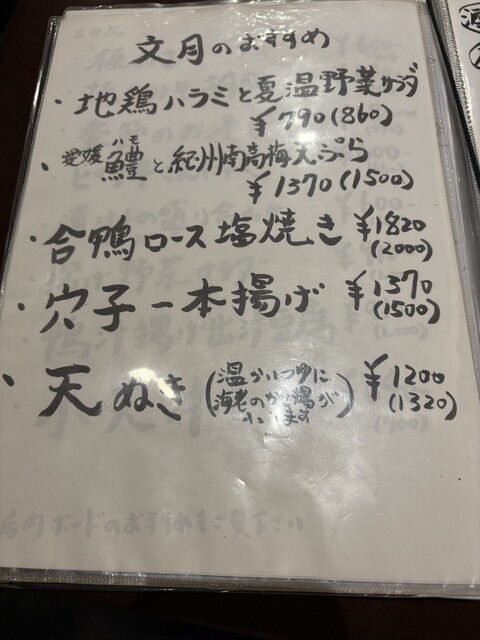 文月のおすすめ
・地鶏ハラミと夏温野菜サラダ
¥790(860)
・愛媛鱧ハモと紀州南高梅天ぷら
¥1370(1500)
・合鴨ロース塩焼き ¥1820
(2000)
・穴子一本揚げ ¥1370
(1500)
・天ぬき(温かいつゆに
海老のかき揚が
入ってます) ¥1200
(1320)
店内ボードのおすすめもご覧下さい